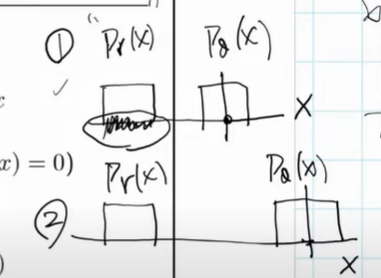 ① Pr(x) Pθ(x)
X
x) = 0) Pr(x) Pθ(x)
②
X